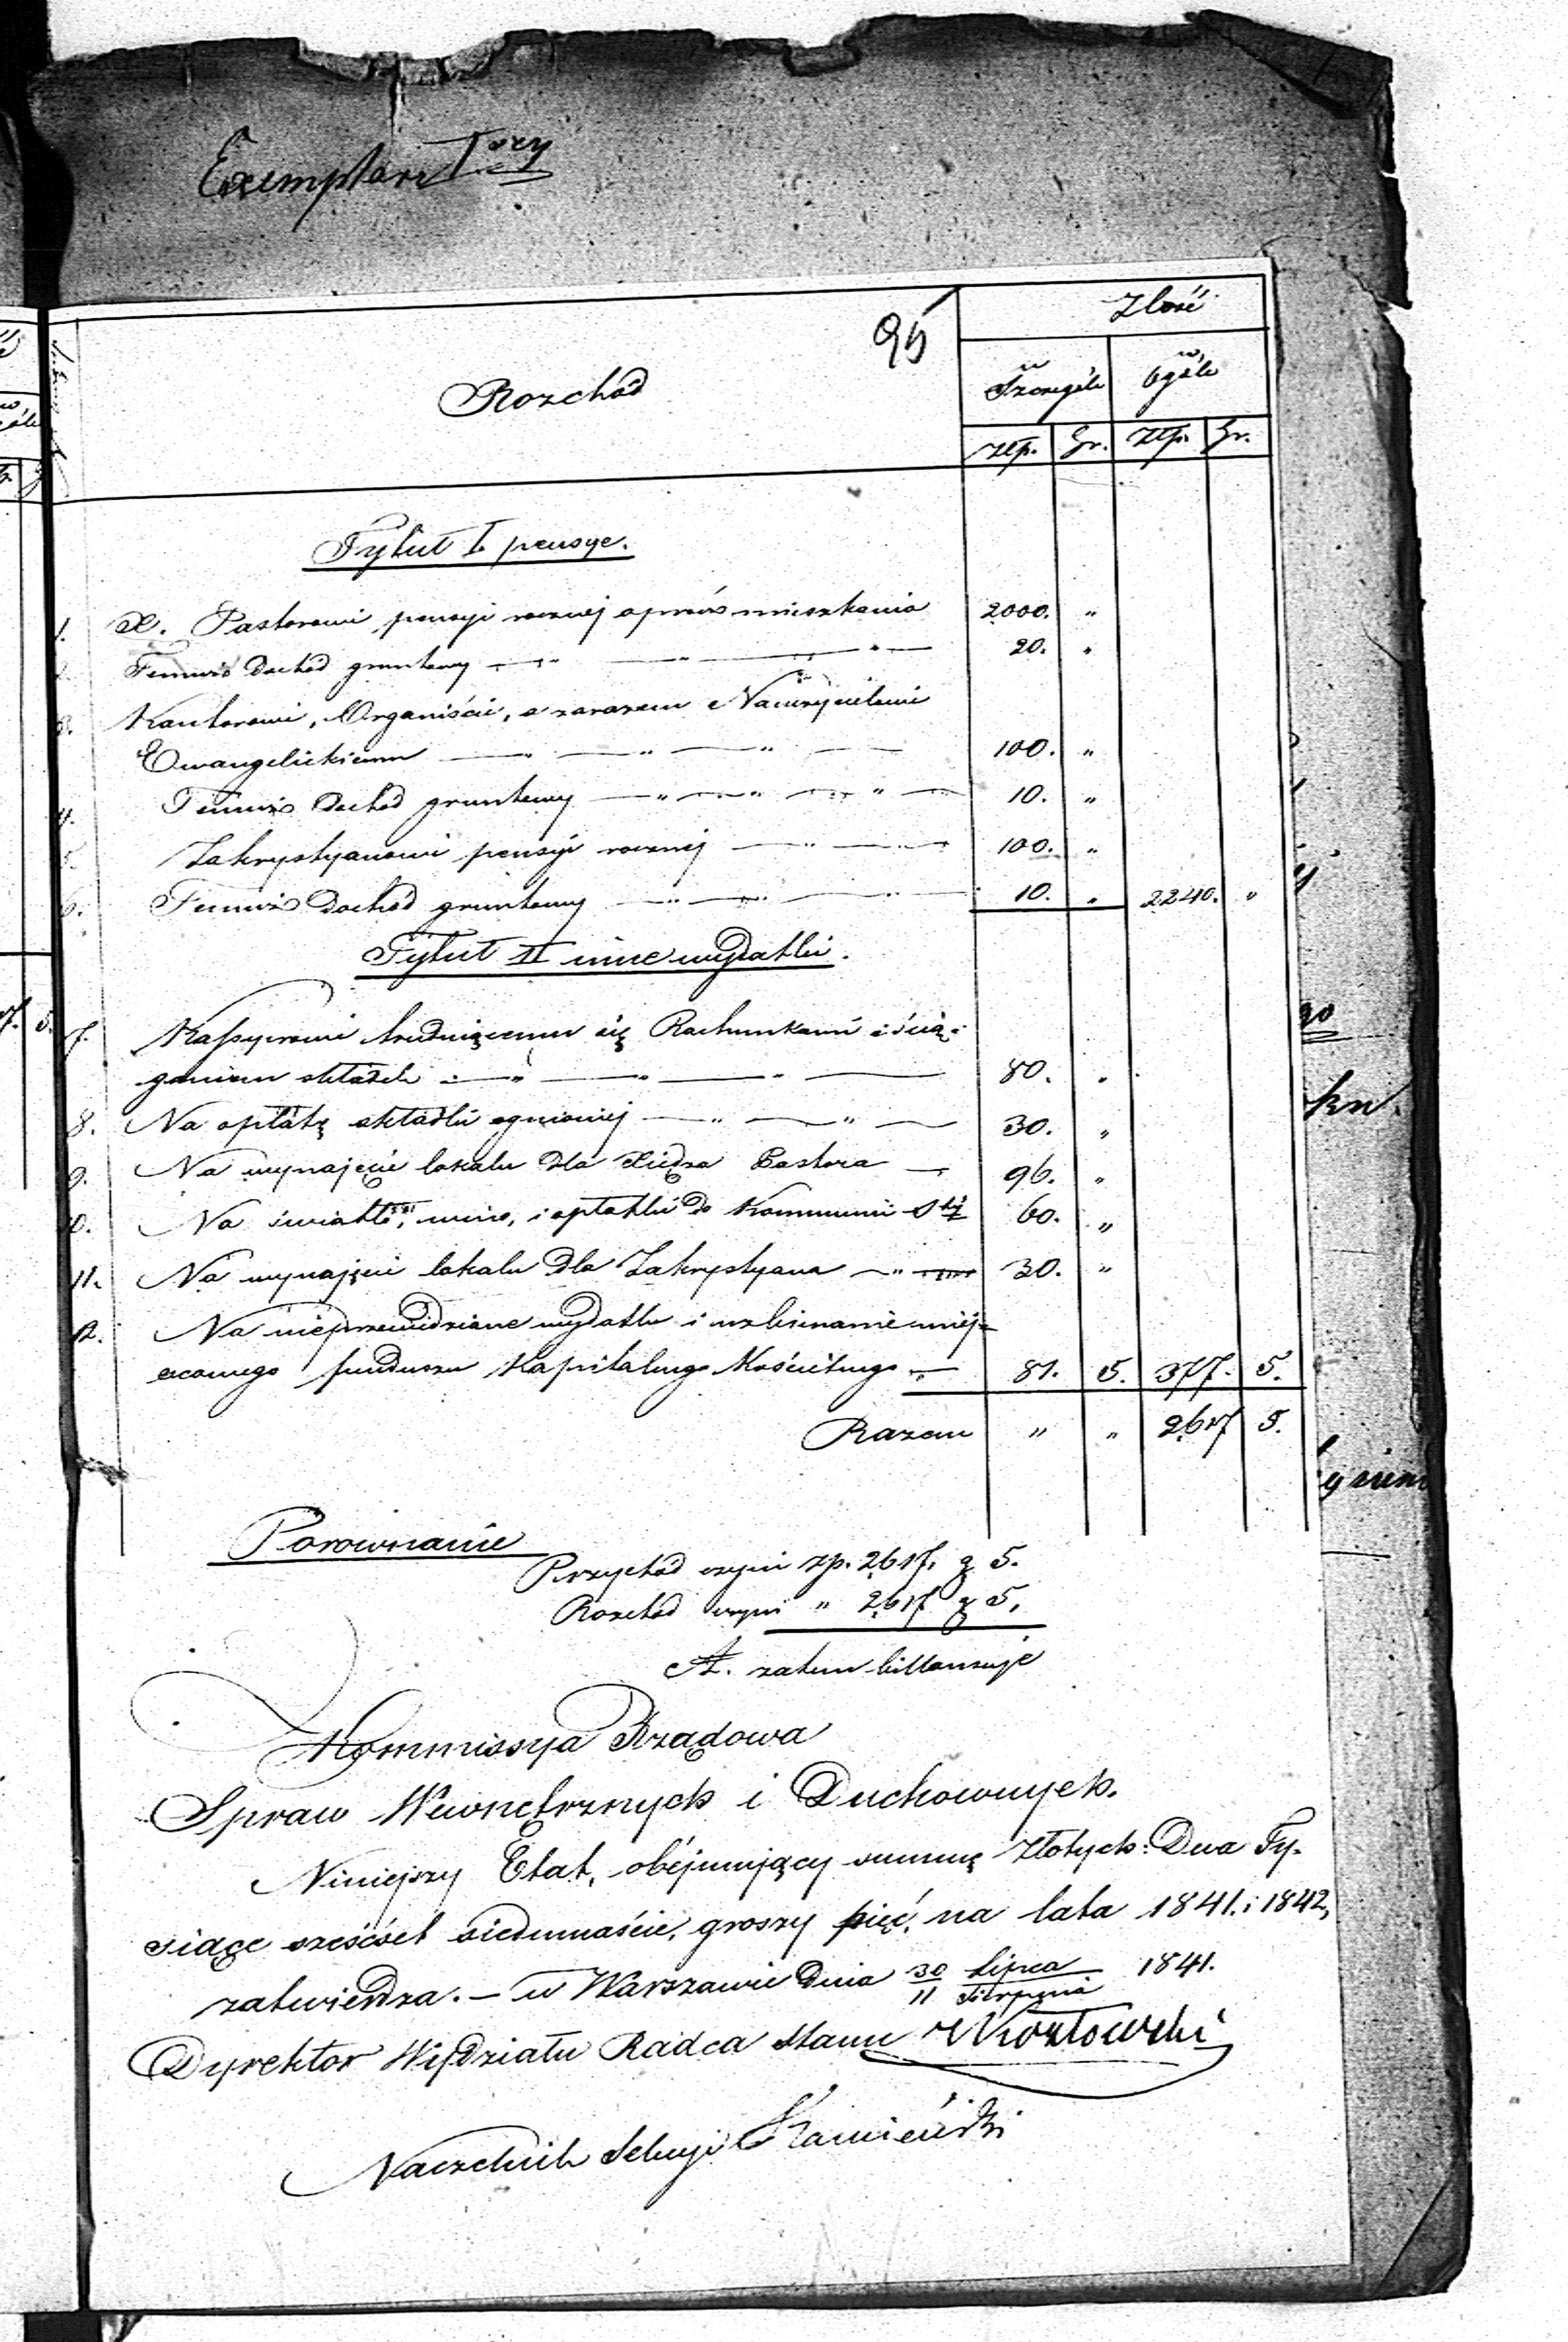 Exemplarz Iszy
95
Ilość
Rozchód
w Szczególe
w Ogóle
złp. Gr. złp. Gr.
Tytuł I pensye.
1. X. Pastorowi pensyi rocznej oprócz mieszkania 2000. "
Temuż dochód gruntowy — " — " — " — 20. "
3. Kantorowi, Organiście, a zarazem Nauczycielowi
Ewangelickiemu — " — " — " — 100. "
4. Temuż dochód gruntowy — " — " — " — 10. "
5. Zakrystyanowi pensyi rocznej — " — " 100. "
6. Temuż dochód gruntowy — " — " — " — 10. " 2240. "
Tytuł II inne wydatki.
7. Kassyerowi trudniącemu się Rachunkami i ścią-
ganiem składek — " — " — " — 80. "
8. Na opłatę składki ogniowej — " — " — 30. "
9. Na wynajęcie lokalu dla Xiędza Pastora — 96. "
10. Na światło, wino, i opłatki do Kommunii Stéj 60. "
11. Na wynajęcie lokalu dla Zakrystyana — " — 30. "
12. Na nieprzewidziane wydatki i uzbieranie umiej-
scowego funduszu Kapitalnego Kościelnego — 81. 5. 377. 5.
Razem " " 2617 5.
Porownanie
Przychód czyni zp. 2617. g 5.
Rozchód czyni " 2617 g 5.
A. zatem billansuje
Kommissya Rządowa
Spraw Wewnętrznych i Duchownych.
Niniejszy Etat, obejmujący summę Złotych: Dwa Ty-
siące sześćset siedmnaście, groszy pięć, na lata 1841. i 1842,
zatwierdza. — w Warszawie dnia 30 Lipca / 11 Sierpnia 1841.
Dyrektor Wydziału Radca Stanu Kozłowski
Naczelnik Sekcyi Kamieński